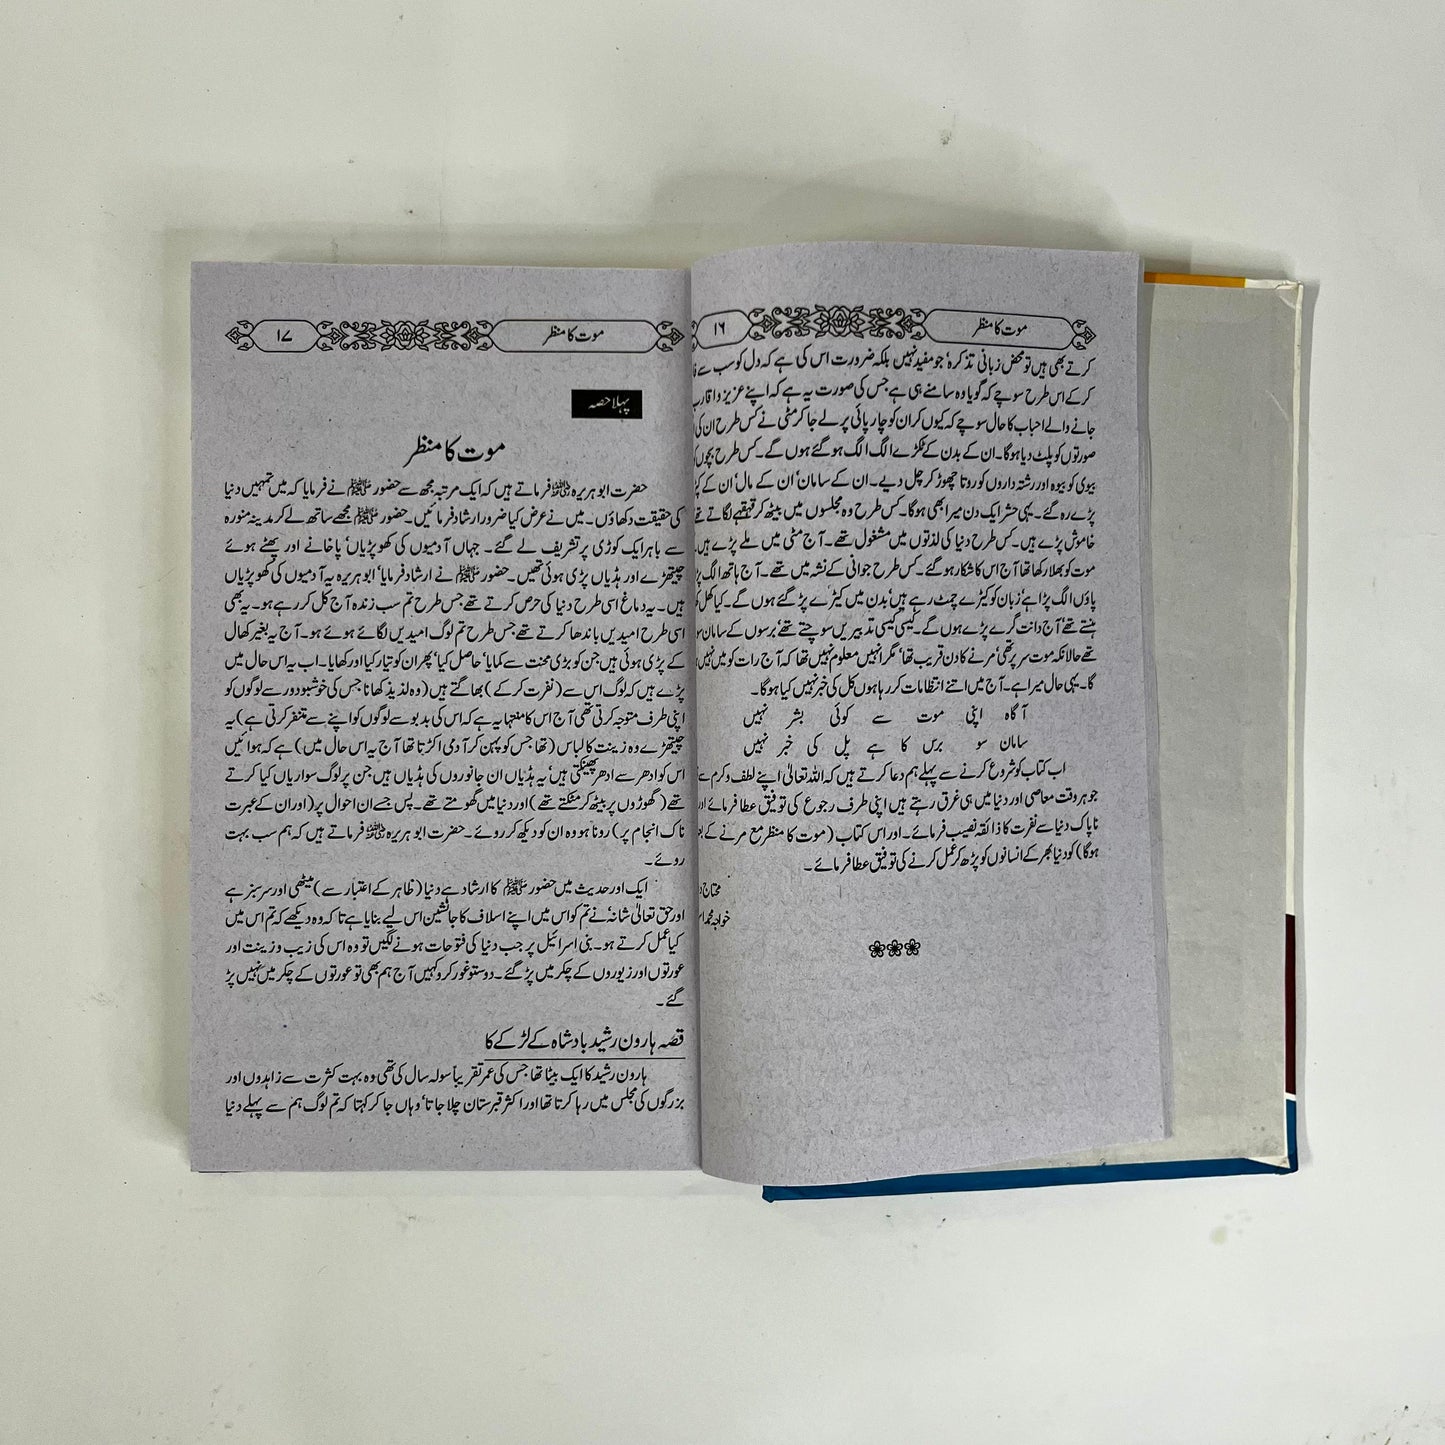 موت کا منظر
۱۶
کرتے بھی ہیں تو محض زبانی تذکرہ جو مفید نہیں بلکہ ضرورت اس کی ہے کہ دل کو سب سے
کر کے اس طرح سوچے کہ گویا وہ سامنے ہی ہے جس کی صورت یہ ہے کہ اپنے عزیز و اقارب
جانے والے احباب کا حال سوچے کہ کیوں کر ان کو چار پائی پر لے جا کر مٹی نے کس طرح ان کی
صورتوں کو پلٹ دیا ہوگا۔ ان کے بدن کے ٹکڑے الگ الگ ہو گئے ہوں گے۔ کس طرح بچوں کو
بیوی کو بیوہ اور رشتہ داروں کو روتا چھوڑ کر چل دیے۔ ان کے سامان' ان کے مال' ان کے
پڑے رہ گئے۔ یہی حشر ایک دن میرا بھی ہوگا۔ کس طرح وہ مجلسوں میں بیٹھ کر قہقہے لگاتے تھے
خاموش پڑے ہیں۔ کس طرح دنیا کی لذتوں میں مشغول تھے۔ آج مٹی میں ملے پڑے ہیں۔
موت کو بھلا رکھا تھا آج اس کا شکار ہو گئے۔ کس طرح جوانی کے نشہ میں تھے۔ آج ہاتھ الگ
پاؤں الگ پڑا ہے' زبان کو کیڑے چمٹ رہے ہیں' بدن میں کیڑے پڑ گئے ہوں گے۔ کیا کھل
ہنستے تھے' آج دانت گرے پڑے ہوں گے۔ کیسی کیسی تدبیریں سوچتے تھے' برسوں کے سامان
تھے حالانکہ موت سر پر تھی' مرنے کا دن قریب تھا' مگر انہیں معلوم نہیں تھا کہ آج رات کو میں نہیں
گا۔ یہی حال میرا ہے۔ آج میں اتنے انتظامات کر رہا ہوں کل کی خبر نہیں کیا ہوگا۔
آگاہ اپنی موت سے کوئی بشر نہیں
سامان سو برس کا ہے پل کی خبر نہیں
اب کتاب کو شروع کرنے سے پہلے ہم دعا کرتے ہیں کہ اللہ تعالیٰ اپنے لطف و کرم سے
جو ہر وقت معاصی اور دنیا میں ہی غرق رہتے ہیں اپنی طرف رجوع کی توفیق عطا فرمائے اور
ناپاک دنیا سے نفرت کا ذائقہ نصیب فرمائے۔ اور اس کتاب (موت کا منظر مع مرنے کے بعد
ہوگا) کو دنیا بھر کے انسانوں کو پڑھ کر عمل کرنے کی توفیق عطا فرمائے۔
محتاج
خواجہ محمد
موت کا منظر
۱۷
پہلا حصہ
موت کا منظر
حضرت ابو ہریرہ رضی اللہ عنہ فرماتے ہیں کہ ایک مرتبہ مجھ سے حضور ﷺ نے فرمایا کہ میں تمہیں دنیا
کی حقیقت دکھاؤں۔ میں نے عرض کیا ضرور ارشاد فرمائیں۔ حضور ﷺ مجھے ساتھ لے کر مدینہ منورہ
سے باہر ایک کوڑی پر تشریف لے گئے۔ جہاں آدمیوں کی کھوپڑیاں' پاخانے اور پھٹے ہوئے
چیتھڑے اور ہڈیاں پڑی ہوئی تھیں۔ حضور ﷺ نے ارشاد فرمایا' ابو ہریرہ یہ آدمیوں کی کھوپڑیاں
ہیں۔ یہ دماغ اسی طرح دنیا کی حرص کرتے تھے جس طرح تم سب زندہ آج کل کر رہے ہو۔ یہ بھی
اسی طرح امیدیں باندھا کرتے تھے جس طرح تم لوگ امیدیں لگائے ہوئے ہو۔ آج یہ بغیر کھال
کے پڑی ہوئی ہیں جن کو بڑی محنت سے کمایا' حاصل کیا' پھر ان کو تیار کیا اور کھایا۔ اب یہ اس حال میں
پڑے ہیں کہ لوگ اس سے (نفرت کر کے) بھاگتے ہیں (وہ لذیذ کھانا جس کی خوشبو دور سے لوگوں کو
اپنی طرف متوجہ کرتی تھی آج اس کا منتہا یہ ہے کہ اس کی بدبو سے لوگوں کو اپنے سے متنفر کرتی ہے) یہ
چیتھڑے وہ زینت کا لباس (تھا جس کو پہن کر آدمی اکڑتا تھا آج یہ اس حال میں) ہے کہ ہوائیں
اس کو ادھر سے ادھر پھینکتی ہیں' یہ ہڈیاں ان جانوروں کی ہڈیاں ہیں جن پر لوگ سواریاں کیا کرتے
تھے (گھوڑوں پر بیٹھ کر مٹکتے تھے) اور دنیا میں گھومتے تھے۔ پس جسے ان احوال پر (اور ان کے عبرت
ناک انجام پر) رونا ہو وہ ان کو دیکھ کر روئے۔ حضرت ابو ہریرہ رضی اللہ عنہ فرماتے ہیں کہ ہم سب بہت
روئے۔
ایک اور حدیث میں حضور ﷺ کا ارشاد ہے دنیا (ظاہر کے اعتبار سے) میٹھی اور سرسبز ہے
اور حق تعالیٰ شانہ' نے تم کو اس میں اپنے اسلاف کا جانشین اس لیے بنایا ہے تا کہ وہ دیکھے کہ تم اس میں
کیا عمل کرتے ہو۔ بنی اسرائیل پر جب دنیا کی فتوحات ہونے لگیں تو وہ اس کی زیب و زینت اور
عورتوں اور زیوروں کے چکر میں پڑ گئے۔ دوستو غور کرو کہیں آج ہم بھی تو عورتوں کے چکر میں نہیں پڑ
گئے۔
قصہ ہارون رشید بادشاہ کے لڑکے کا
ہارون رشید کا ایک بیٹا تھا جس کی عمر تقریباً سولہ سال کی تھی وہ بہت کثرت سے زاہدوں اور
بزرگوں کی مجلس میں رہا کرتا تھا اور اکثر قبرستان چلا جاتا' وہاں جا کر کہتا کہ تم لوگ ہم سے پہلے دنیا